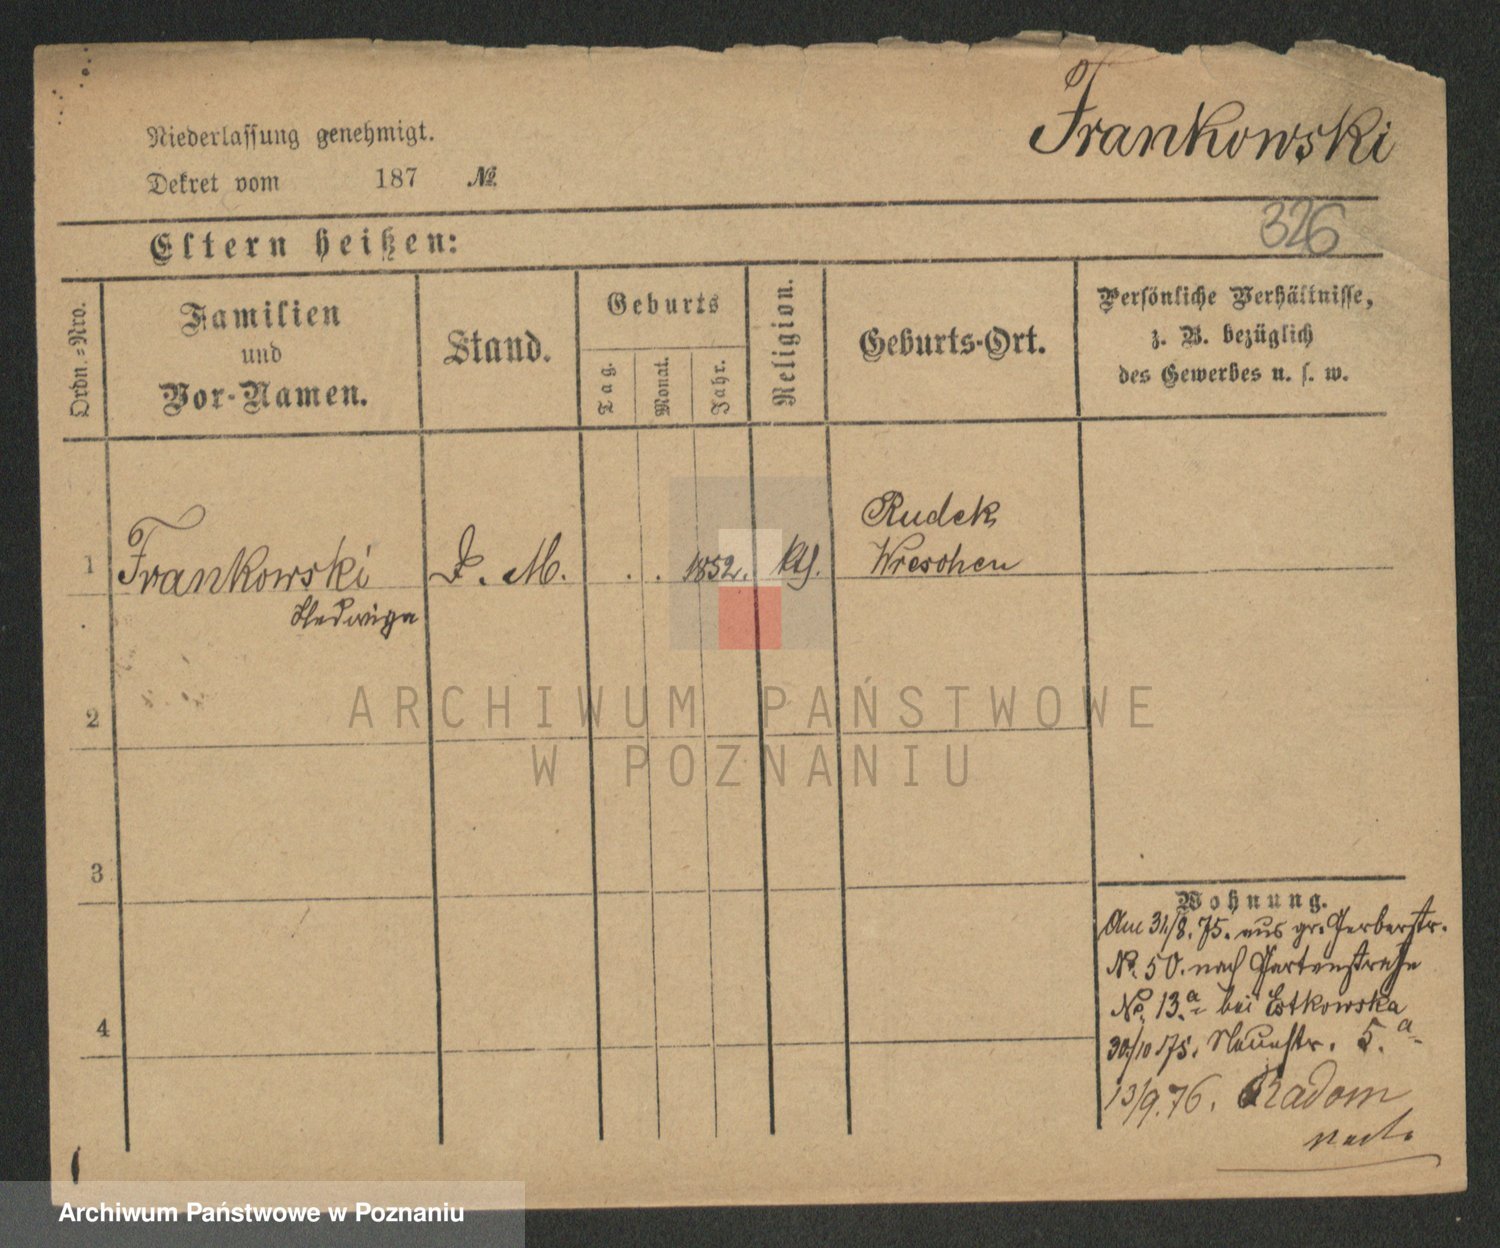 Frankowski
Niederlassung genehmigt.
Dekret vom 187 №
326
Eltern heißen:
Ordn.-Nro.
Familien
und
Vor-Namen.
Stand.
Geburts
Tag.
Monat.
Jahr.
Religion.
Geburts-Ort.
Persönliche Verhältnisse,
z. B. bezüglich
des Gewerbes u. s. w.
1
Frankowski
Hedwiga
D. M.
. . 1852.
kth.
Rudek
Wreschen
2
ARCHIWUM PAŃSTWOWE
W POZNANIU
3
4
Wohnung.
Am 31/8. 75. aus gr. Gerberstr.
No. 50. nach Gartenstraße
No. 13.a bei Estkowska
30/10 75. Neuestr. 5.a
13/9. 76. Radom
Archiwum Państwowe w Poznaniu